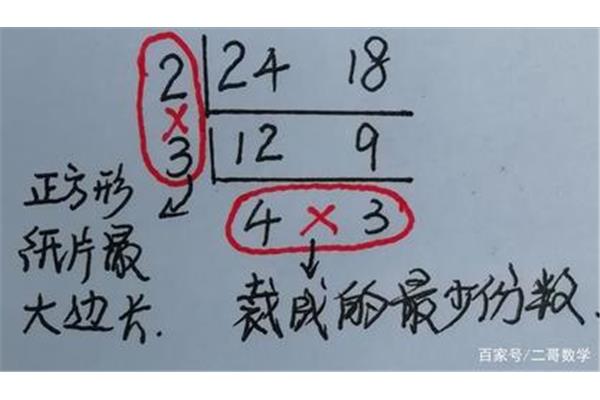 2 24 18
×
3 12 9
4 × 3
正方形
纸片最
大边长.
裁成的最少份数.
百家号/二哥数学